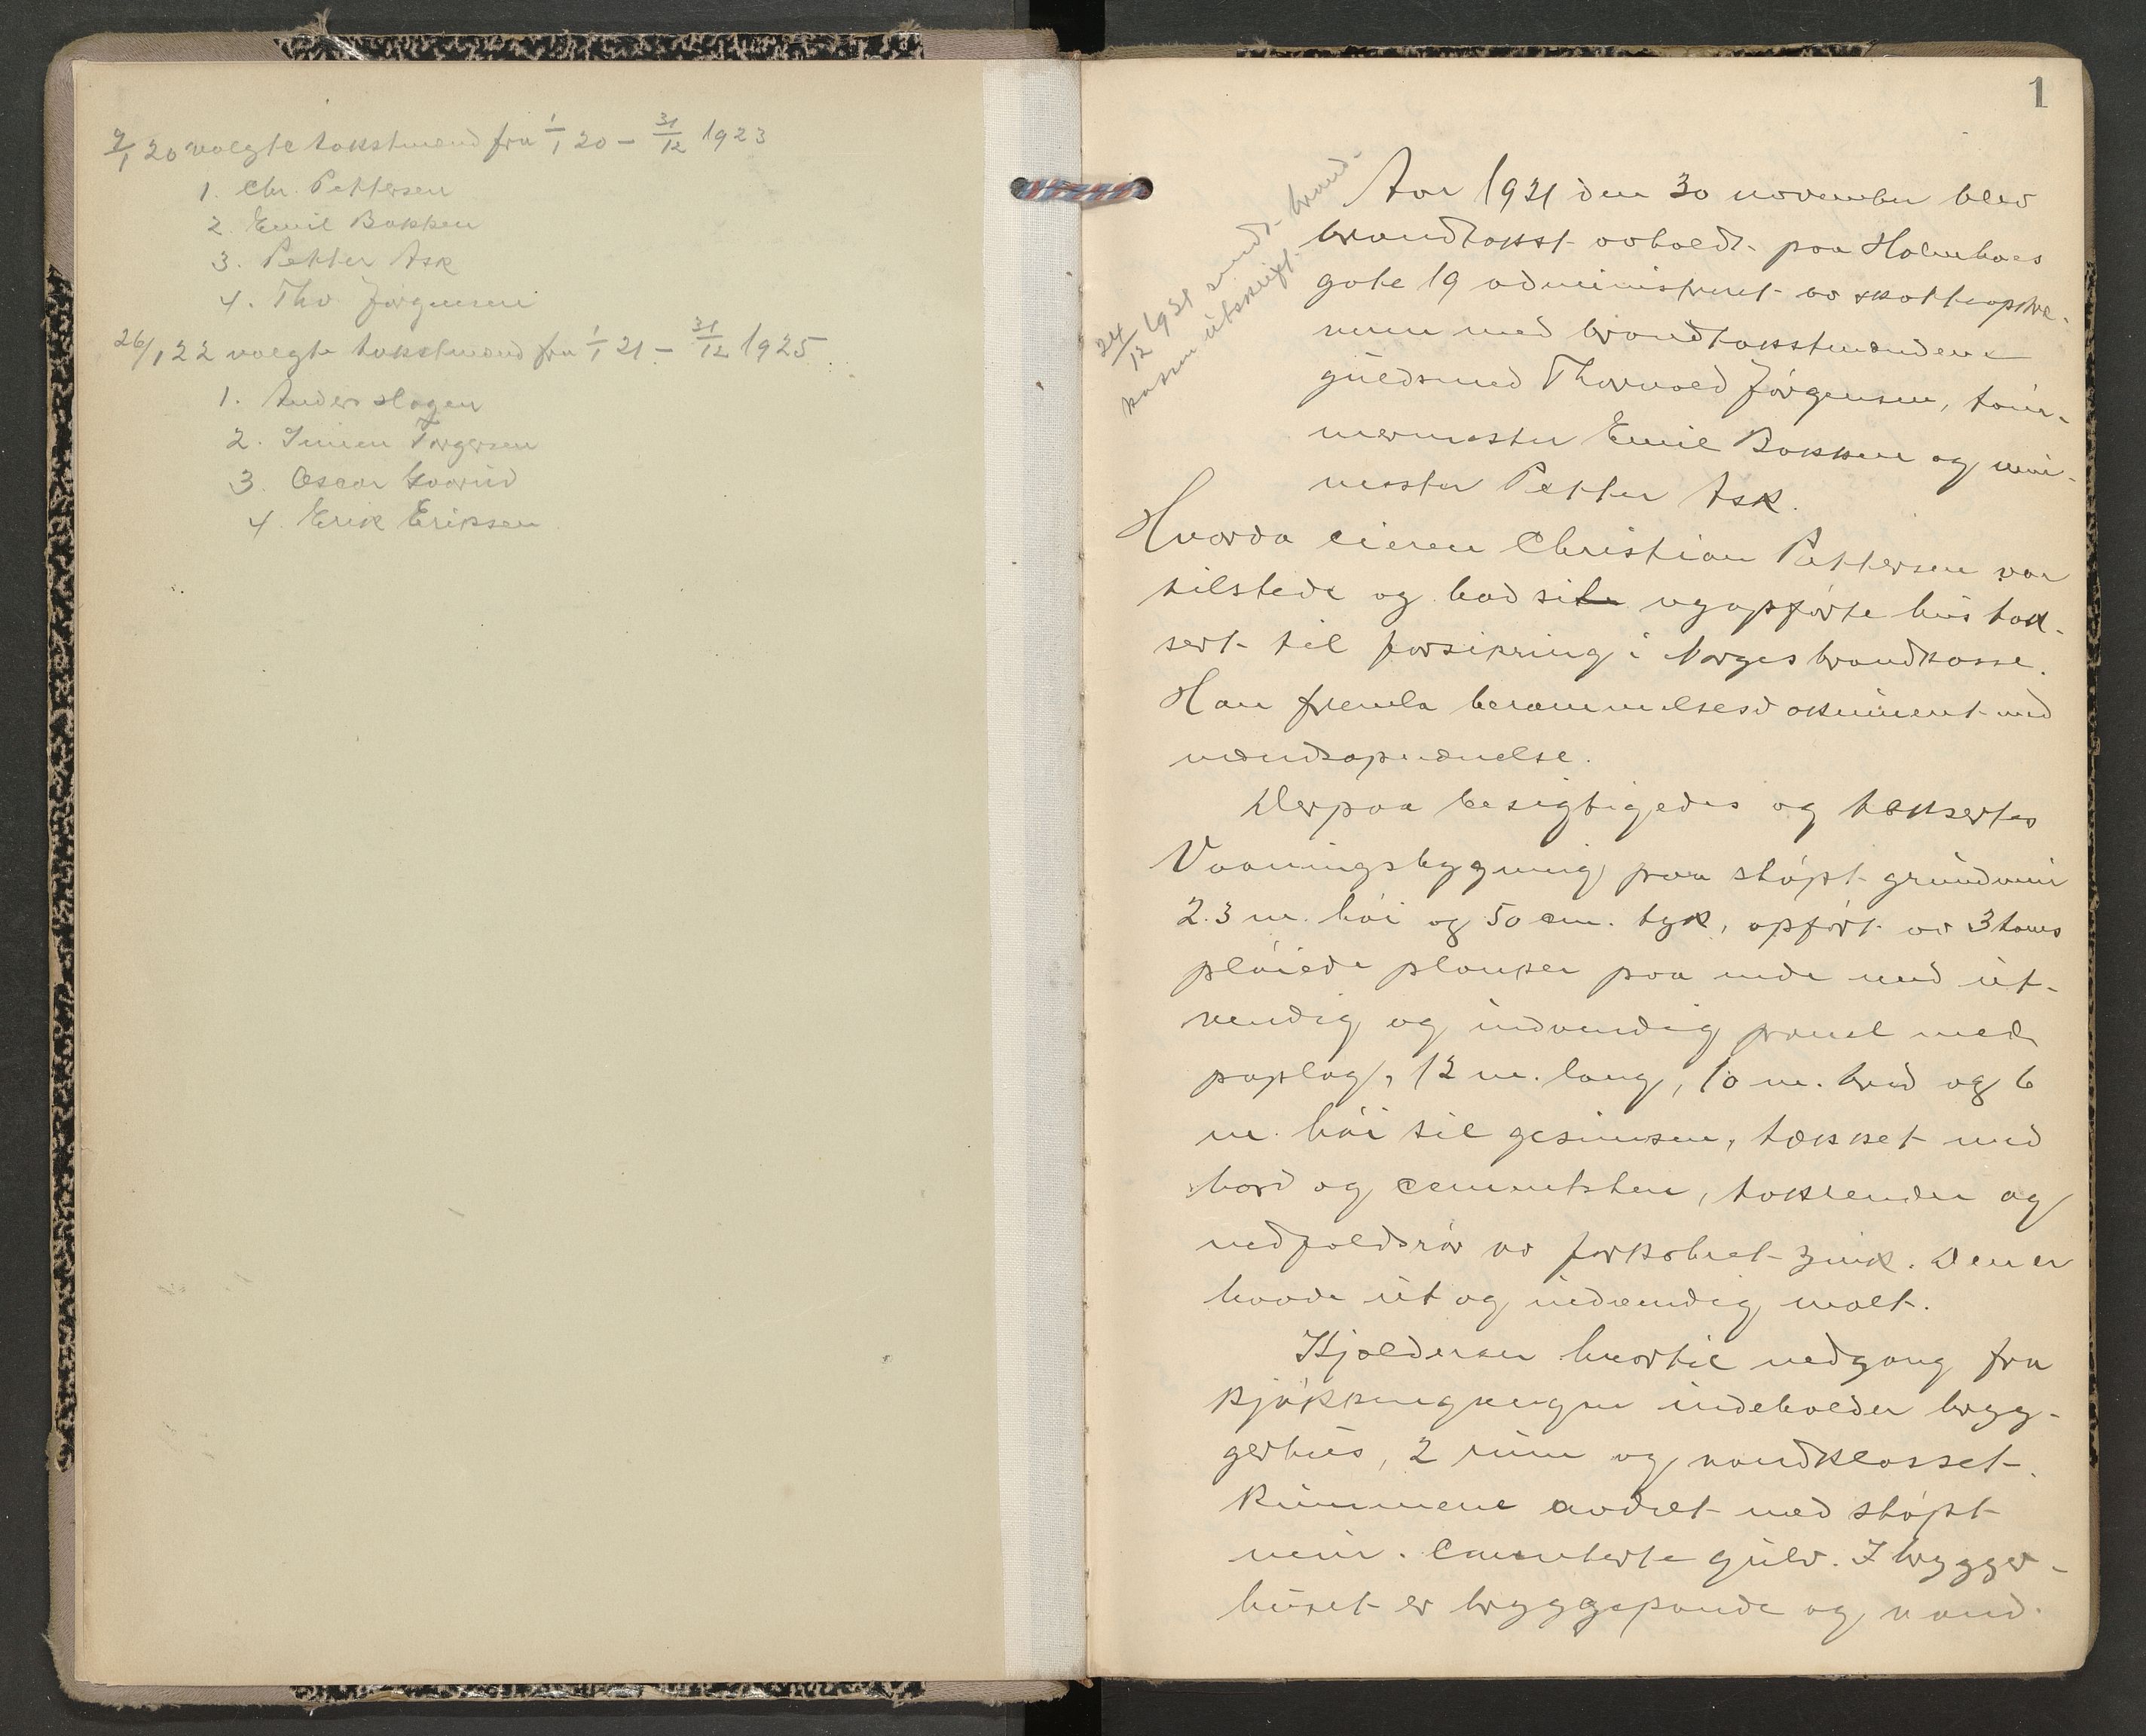 9/1 20 valgte takstmænd fra 1/1 20 – 31/12 1923
1. Chr. Pettersen
2. Emil Bakken
3. Petter Ask
4. Tho Jørgensen
26/1 22 valgte takstmænd fra 1/1 21 – 31/12 1925
1. Anders Hagen
2. Simen Torgersen
3. Oscar
4. Erik Eriksen
1
24/12 1921 sendt brand-
kassen utskrift
Aar 1921 den 30 november blev
brandtakst avholdt paa Holmboes
gate 19 administreret av skatteopkræ-
veren med brandtakstmændene
guldsmed Thorvald Jørgensen, tøm-
mermester Emil Bakken og mur-
mester Petter Ask.
Hvorda eieren Christian Pettersen var
tilstede og bad sit nyopførte hus tak-
sert til forsikring i Norges brandkasse.
Han fremla berammelsesdokument med
mændsopnævnelse.
Derpaa besigtigedes og taksertes
Vaaningsbygning paa støpt grundmur
2.3 m. høi og 50 cm. tyk, opført av 3 toms
pløiede planker paa ende med ut-
vendig og indvendig panel med
paplag, 12 m. lang, 10 m. bred og 6
m. høi til gesimsen, tækket med
bord og cementsten, takrender og
nedfaldsrør av forkobret zink. Den er
baade ut og indvendig malt.
Kjælderen hvortil nedgang fra
kjøkkengangen indeholder bryg-
gerhus, 2 rum og vandklosset.
Rummene avdelt med støpt
mur. Cementerte gulv. I brygger-
huset er bryggepande og vand-